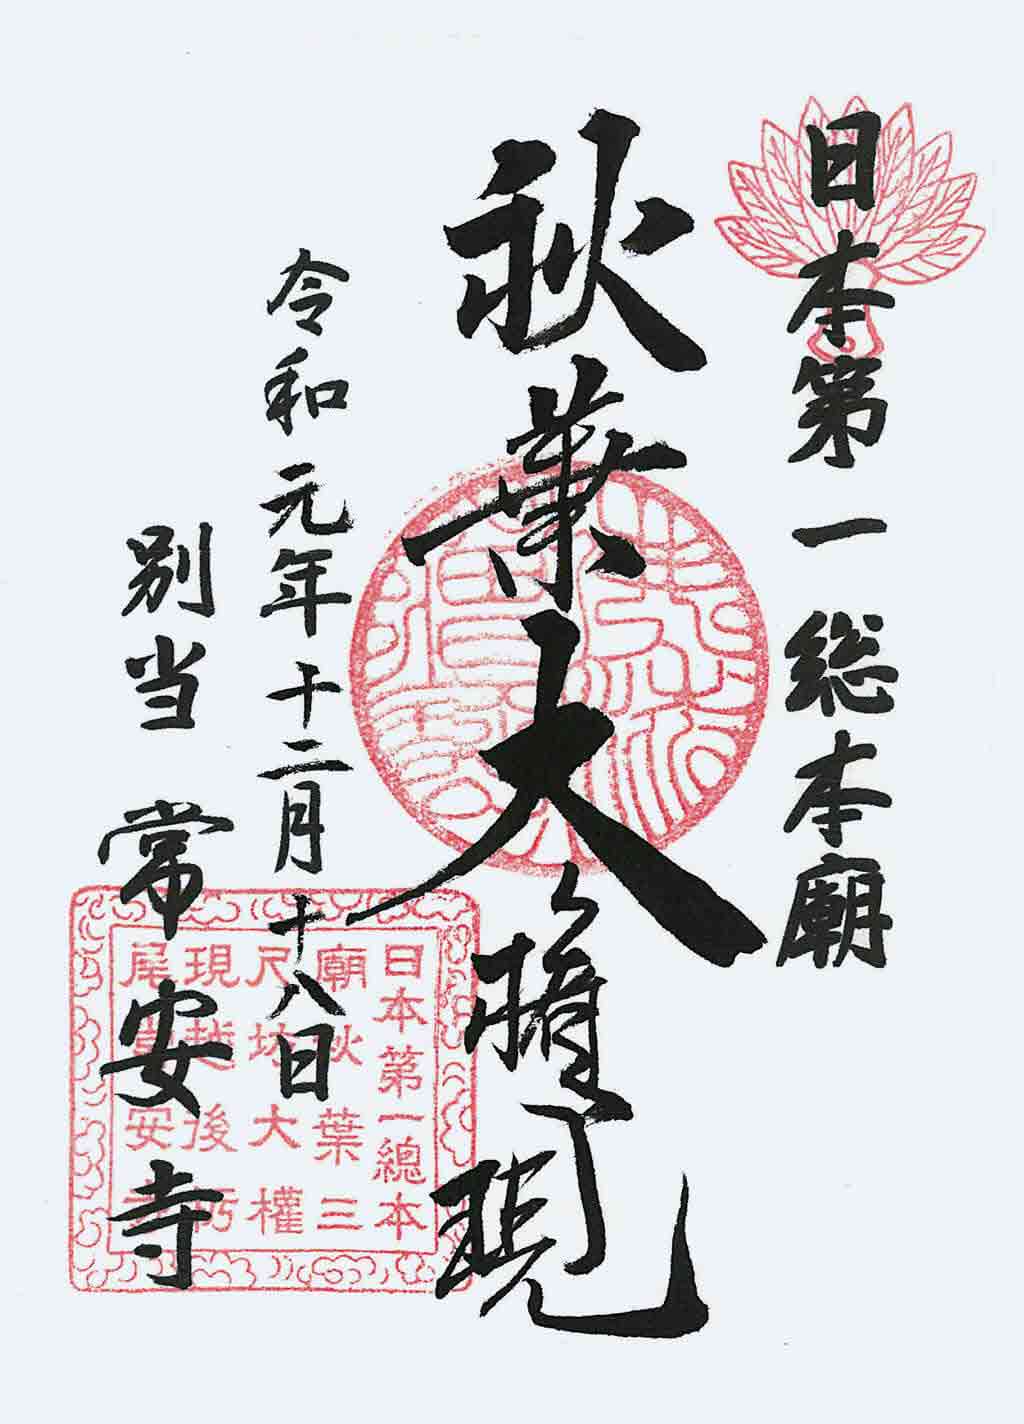 日本第一総本廟
秋葉大権現
令和元年十二月十八日
別当 常安寺
日本第一總本
廟秋葉三
尺坊大權
現越後栃
尾常安寺